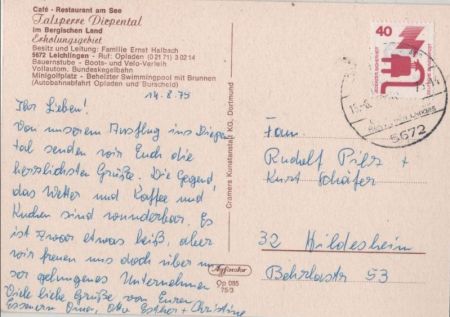 Café - Restaurant am See
Talsperre Diepental
im Bergischen Land
Erholungsgebiet
Besitz und Leitung: Familie Ernst Halbach
5672 Leichlingen - Ruf: Opladen (0 21 71) 3 02 14
Bauernstube - Boots- und Velo-Verleih
Vollautom. Bundeskegelbahn
Minigolfplatz - Beheizter Swimmingpool mit Brunnen
(Autobahnabfahrt Opladen und Burscheid)
14.8.75
Ihr Lieben!
Von unserem Ausflug ins Diepen
tal senden wir Euch die
herzlichsten Grüße. Die Gegend,
das Wetter und Kaffee und
Kuchen sind wunderbar. Es
ist zwar etwas heiß, aber
wir freuen uns doch über un
ser gelungenes Unternehmen
Viele liebe Grüße von Euren
Essenern Otto Esther + Christine
Cramers Kunstanstalt KG, Dortmund
Op 085
75/3
40
5672
Fam.
Rudolf Pilz +
Kurt Schäfer
32 Hildesheim
Behrlastr 53